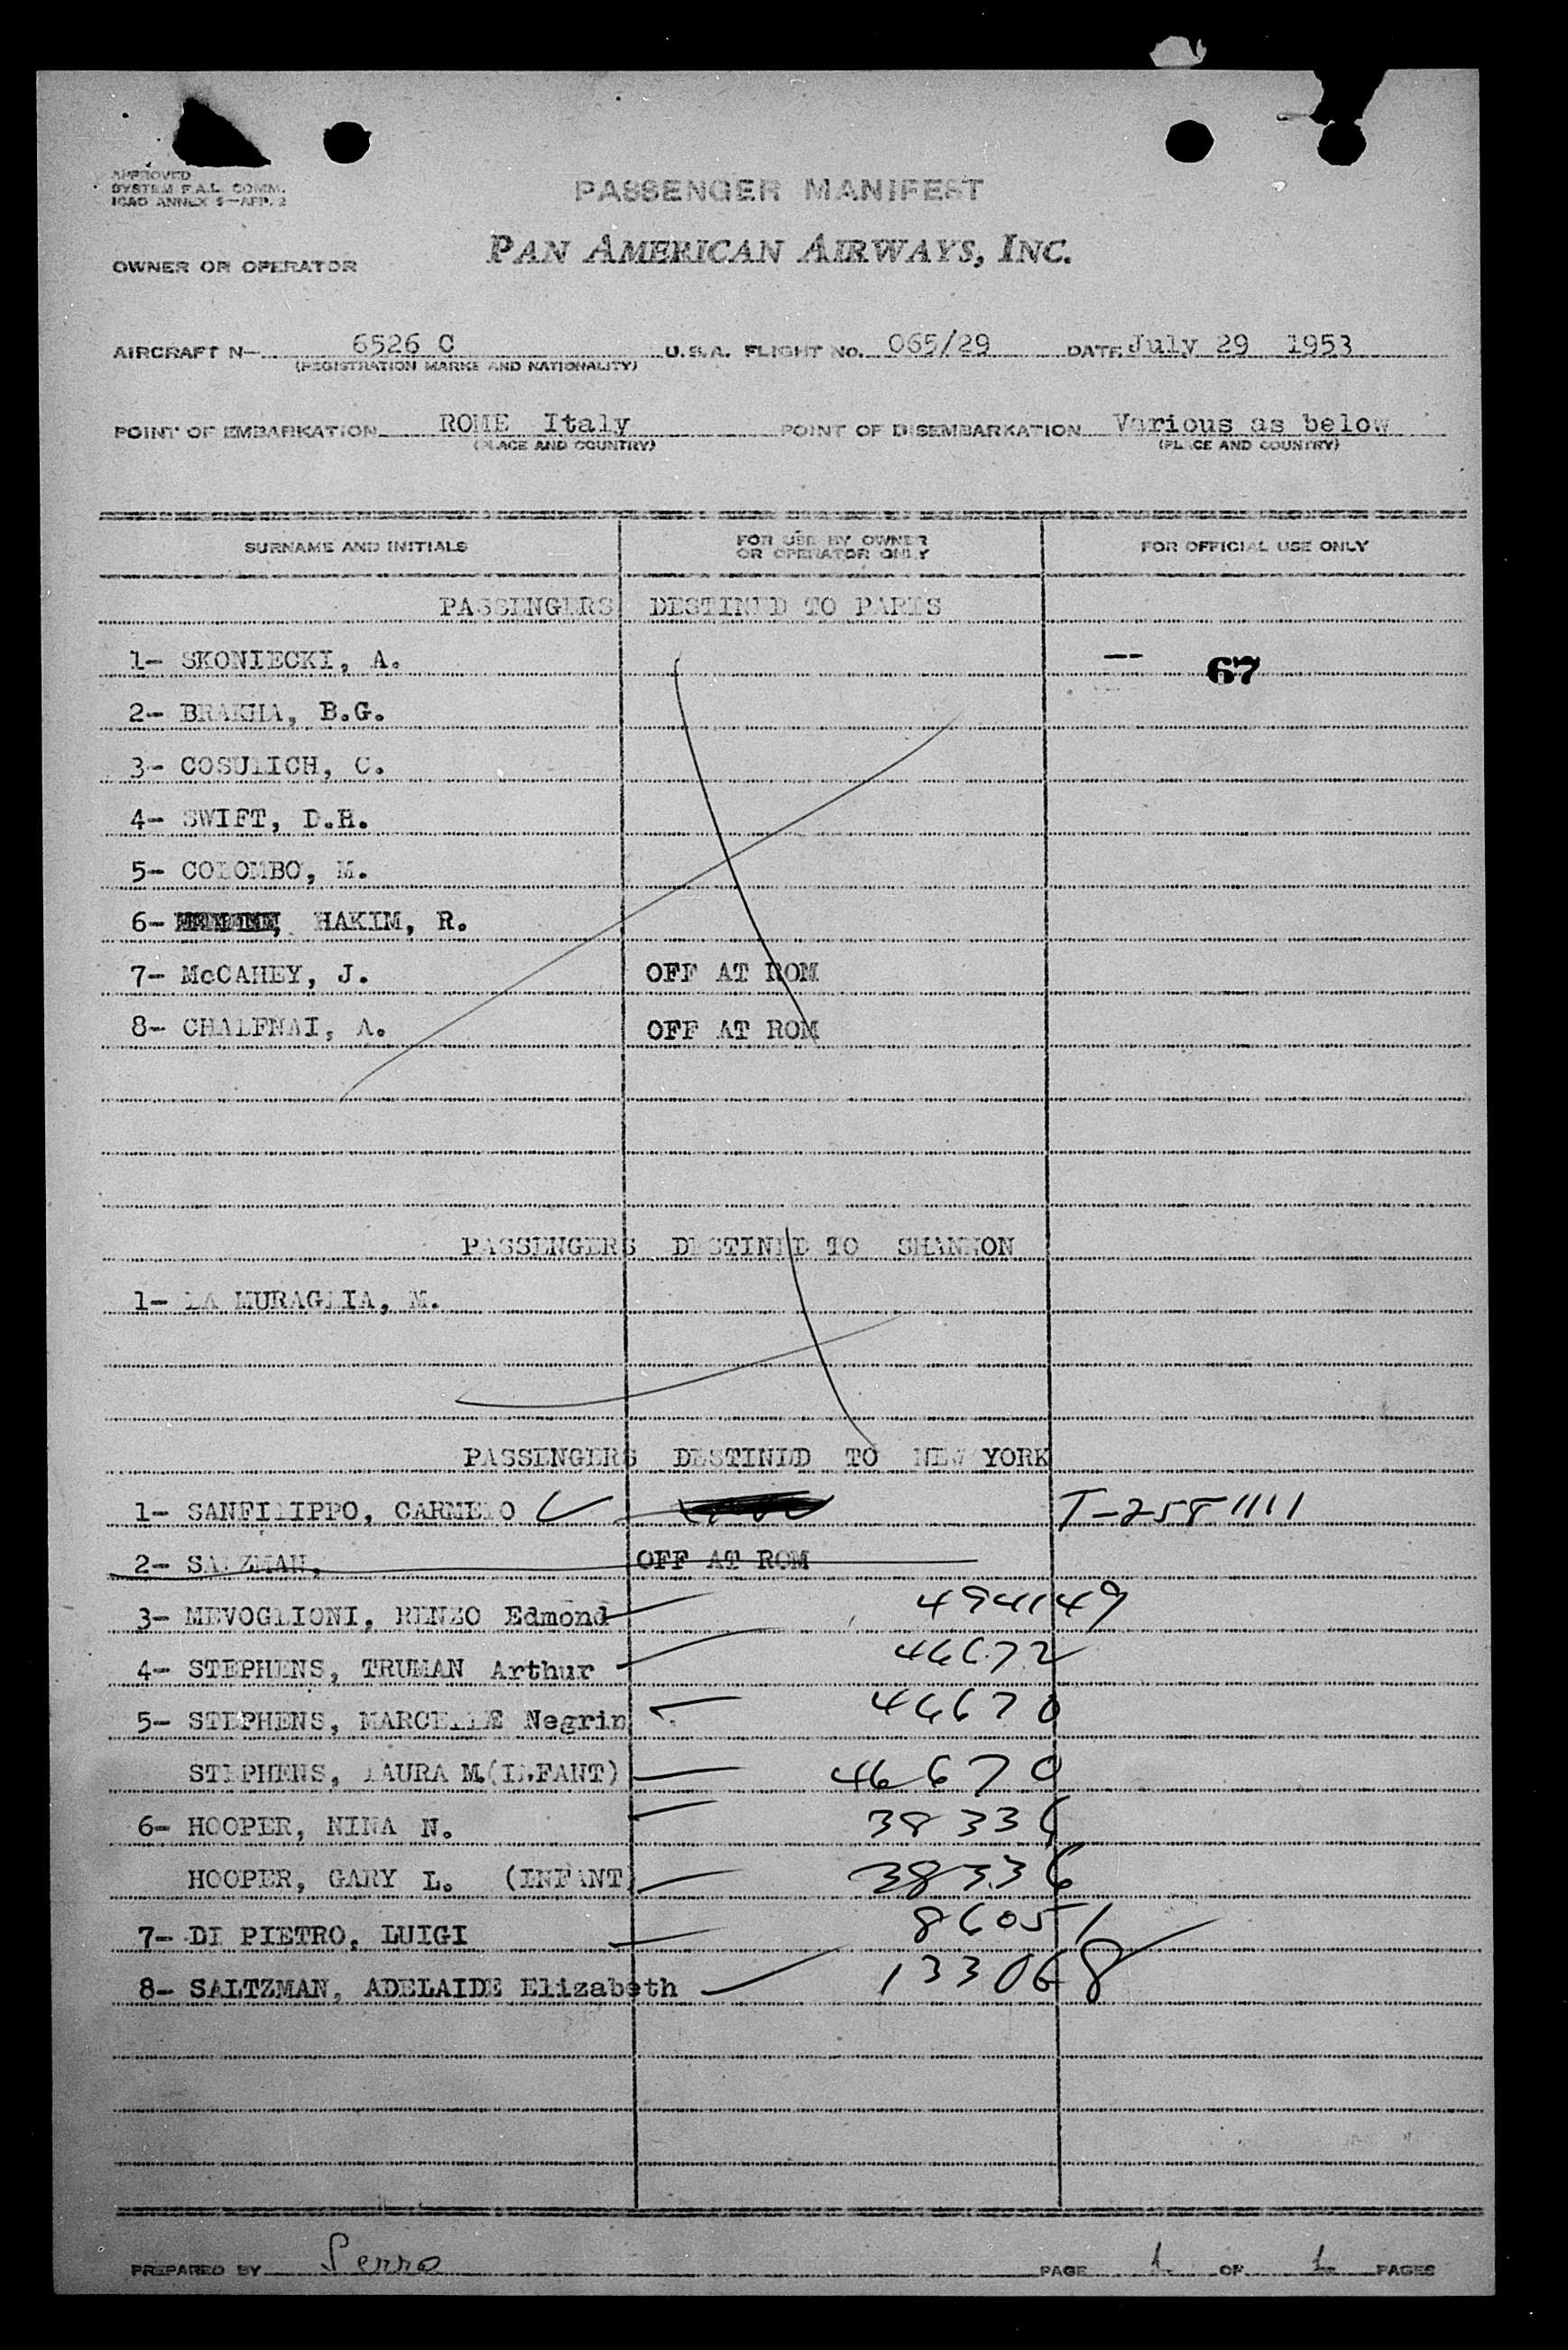 APPROVED
SYSTEM F.A.L. COMM.
ICAO ANNEX 9—APP. 2
PASSENGER MANIFEST
OWNER OR OPERATOR PAN AMERICAN AIRWAYS, INC.
AIRCRAFT N— 6526 C U.S.A. FLIGHT NO. 065/29 DATE July 29 1953
(REGISTRATION MARKS AND NATIONALITY)
POINT OF EMBARKATION ROME Italy POINT OF DISEMBARKATION Various as below
(PLACE AND COUNTRY) (PLACE AND COUNTRY)
SURNAME AND INITIALS FOR USE BY OWNER OR OPERATOR ONLY FOR OFFICIAL USE ONLY
PASSENGERS DESTINED TO PARIS
1- SKONIECKI, A. -- 67
2- BRAKHA, B.G.
3- COSULICH, C.
4- SWIFT, D.H.
5- COLOMBO, M.
6- HAKIM, R.
7- McCAHEY, J. OFF AT ROM
8- CHALFNAI, A. OFF AT ROM
PASSENGERS DESTINED TO SHANNON
1- LA MURAGLIA, M.
PASSENGERS DESTINED TO NEW YORK
1- SANFILIPPO, CARMELO T-258 1111
2- SALZMAN, OFF AT ROM
3- MEVOGLIONI, RENZO Edmond 494149
4- STEPHENS, TRUMAN Arthur 46672
5- STEPHENS, MARCELLE Negrin 46670
STEPHENS, LAURA M.(INFANT) 46670
6- HOOPER, NINA N. 38336
HOOPER, GARY L. (INFANT) 38336
7- DI PIETRO, LUIGI 86051
8- SALTZMAN, ADELAIDE Elizabeth 133068
PREPARED BY Serro PAGE 1 OF 1 PAGES